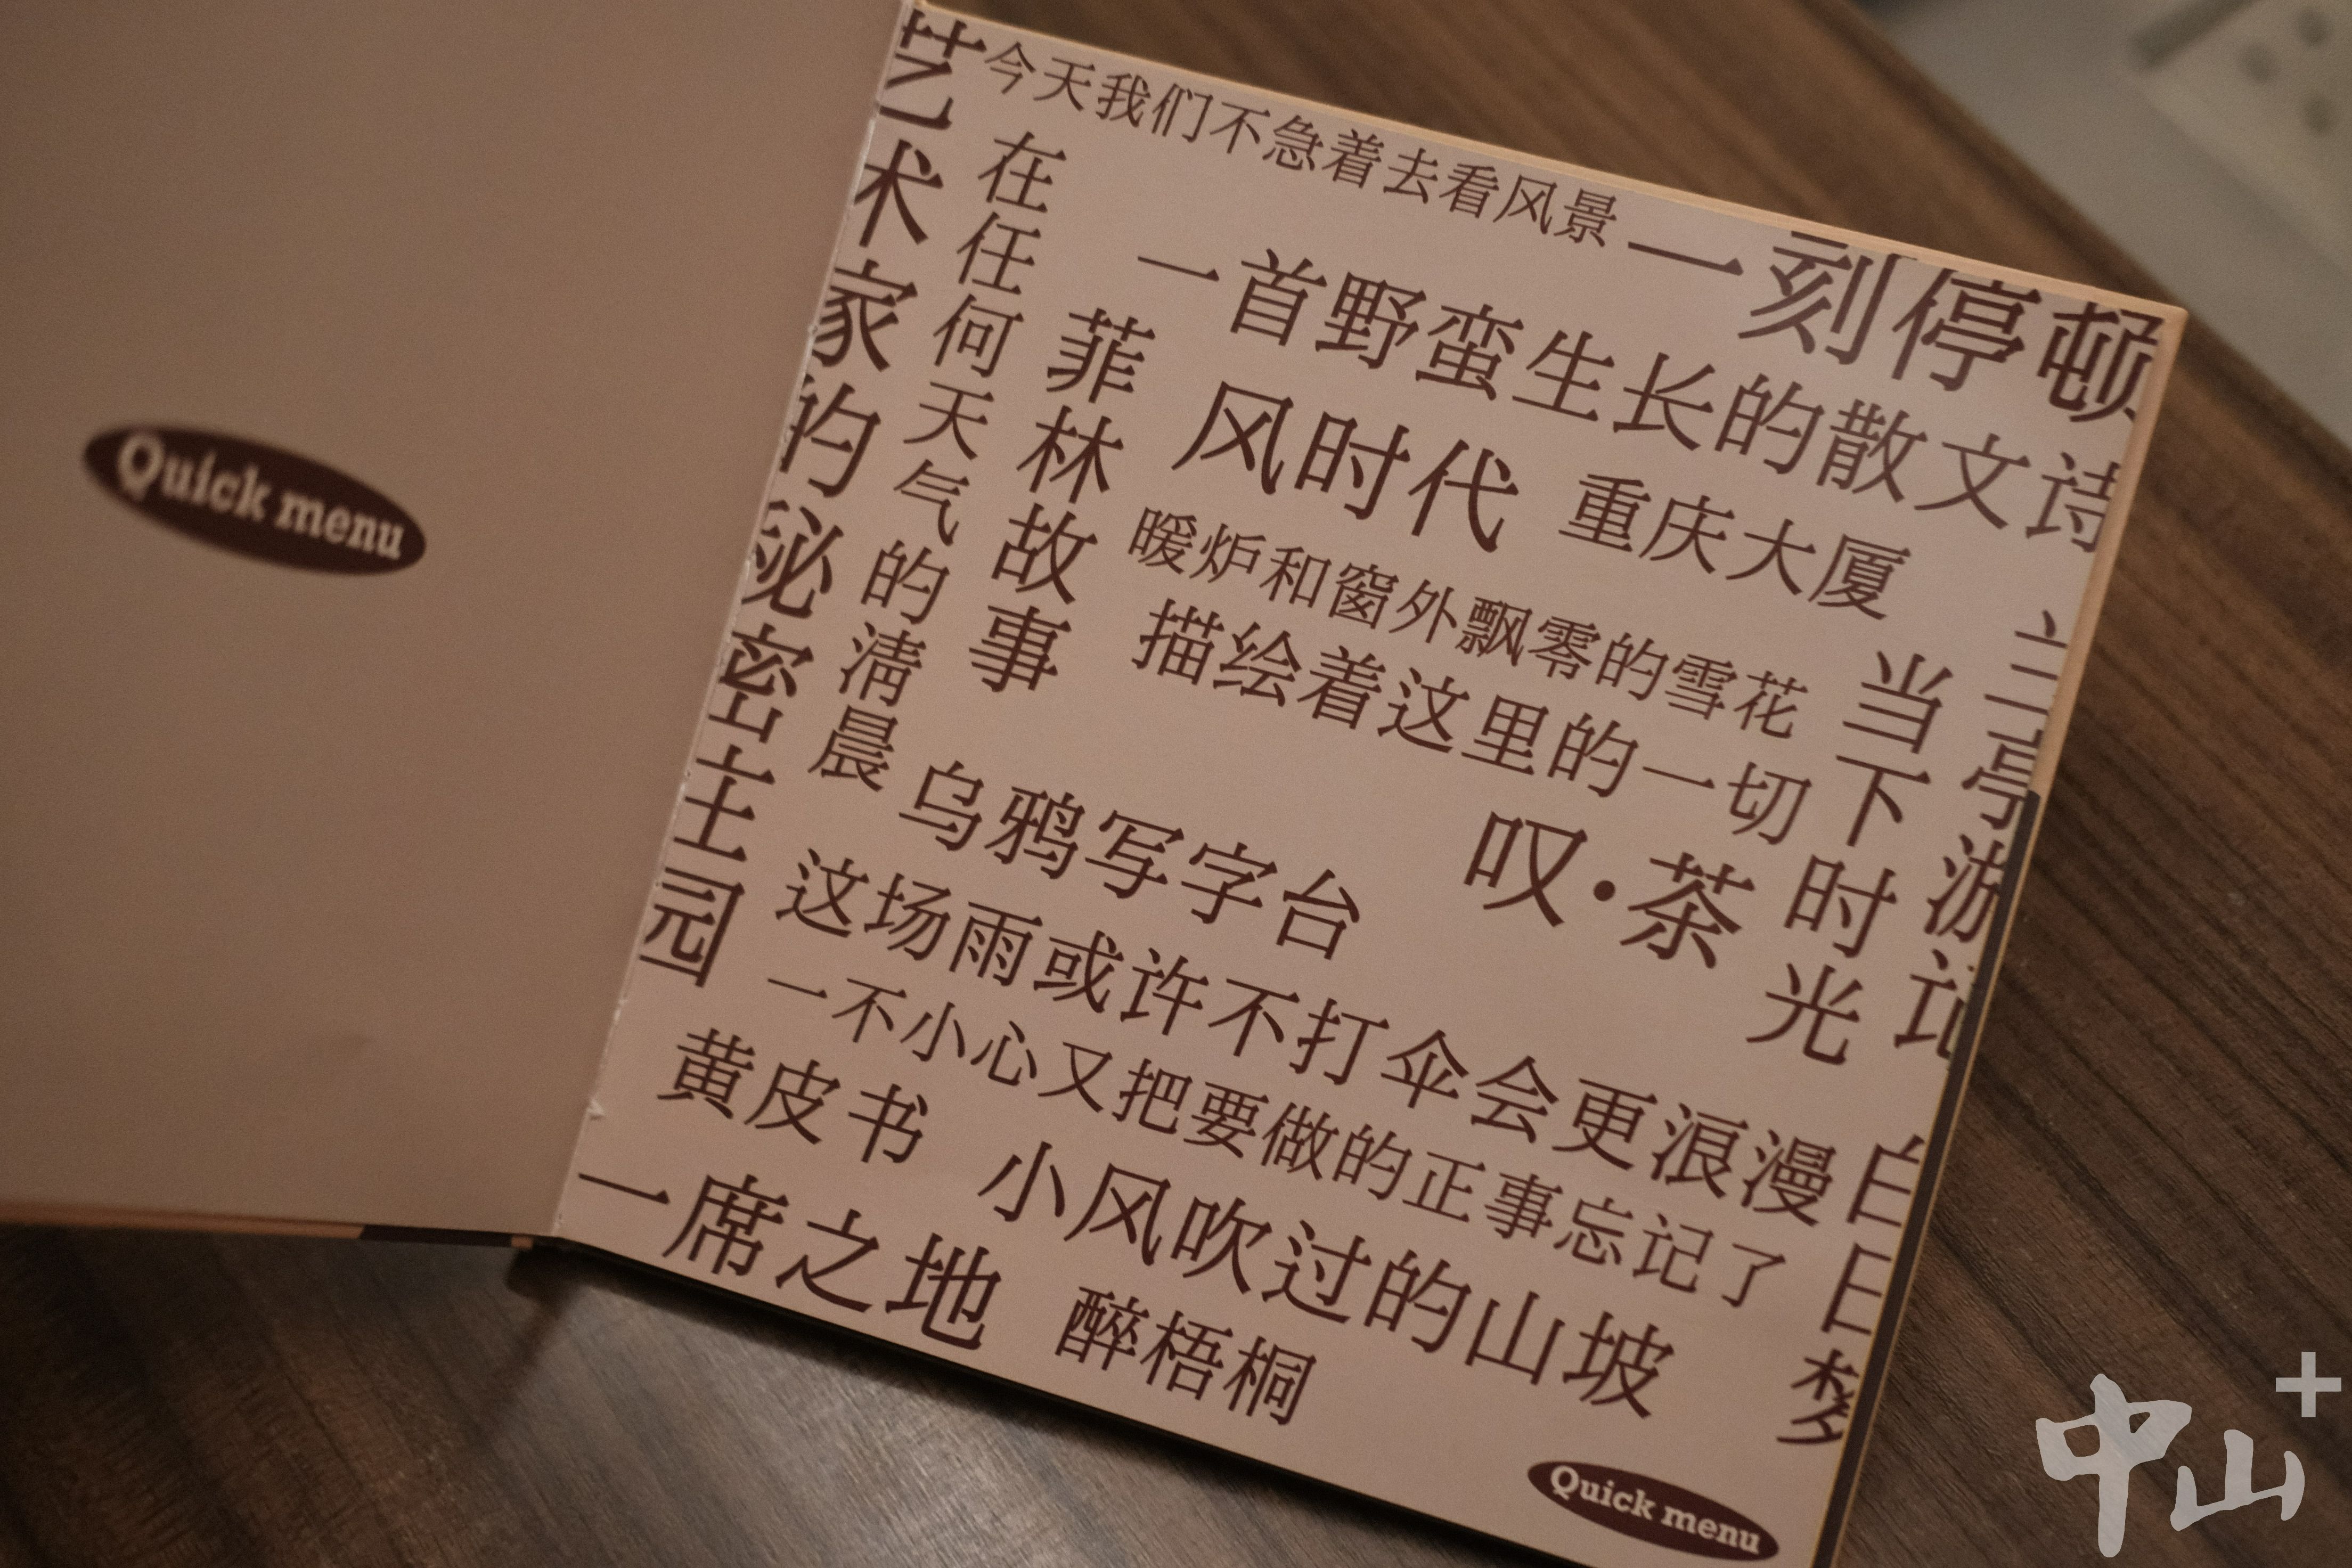 Quick menu
艺术家的秘密主园
今天我们不急着去看风景
一刻停顿
在任何天气的清晨
一首野蛮生长的散文诗
菲林故事
风时代
重庆大厦
暖炉和窗外飘零的雪花
描绘着这里的一切
当下时光
兰亭游记
乌鸦写字台
叹·茶
这场雨或许不打伞会更浪漫
一不小心又把要做的正事忘记了
白日梦
黄皮书
小风吹过的山坡
一席之地
醉梧桐
Quick menu
中山+